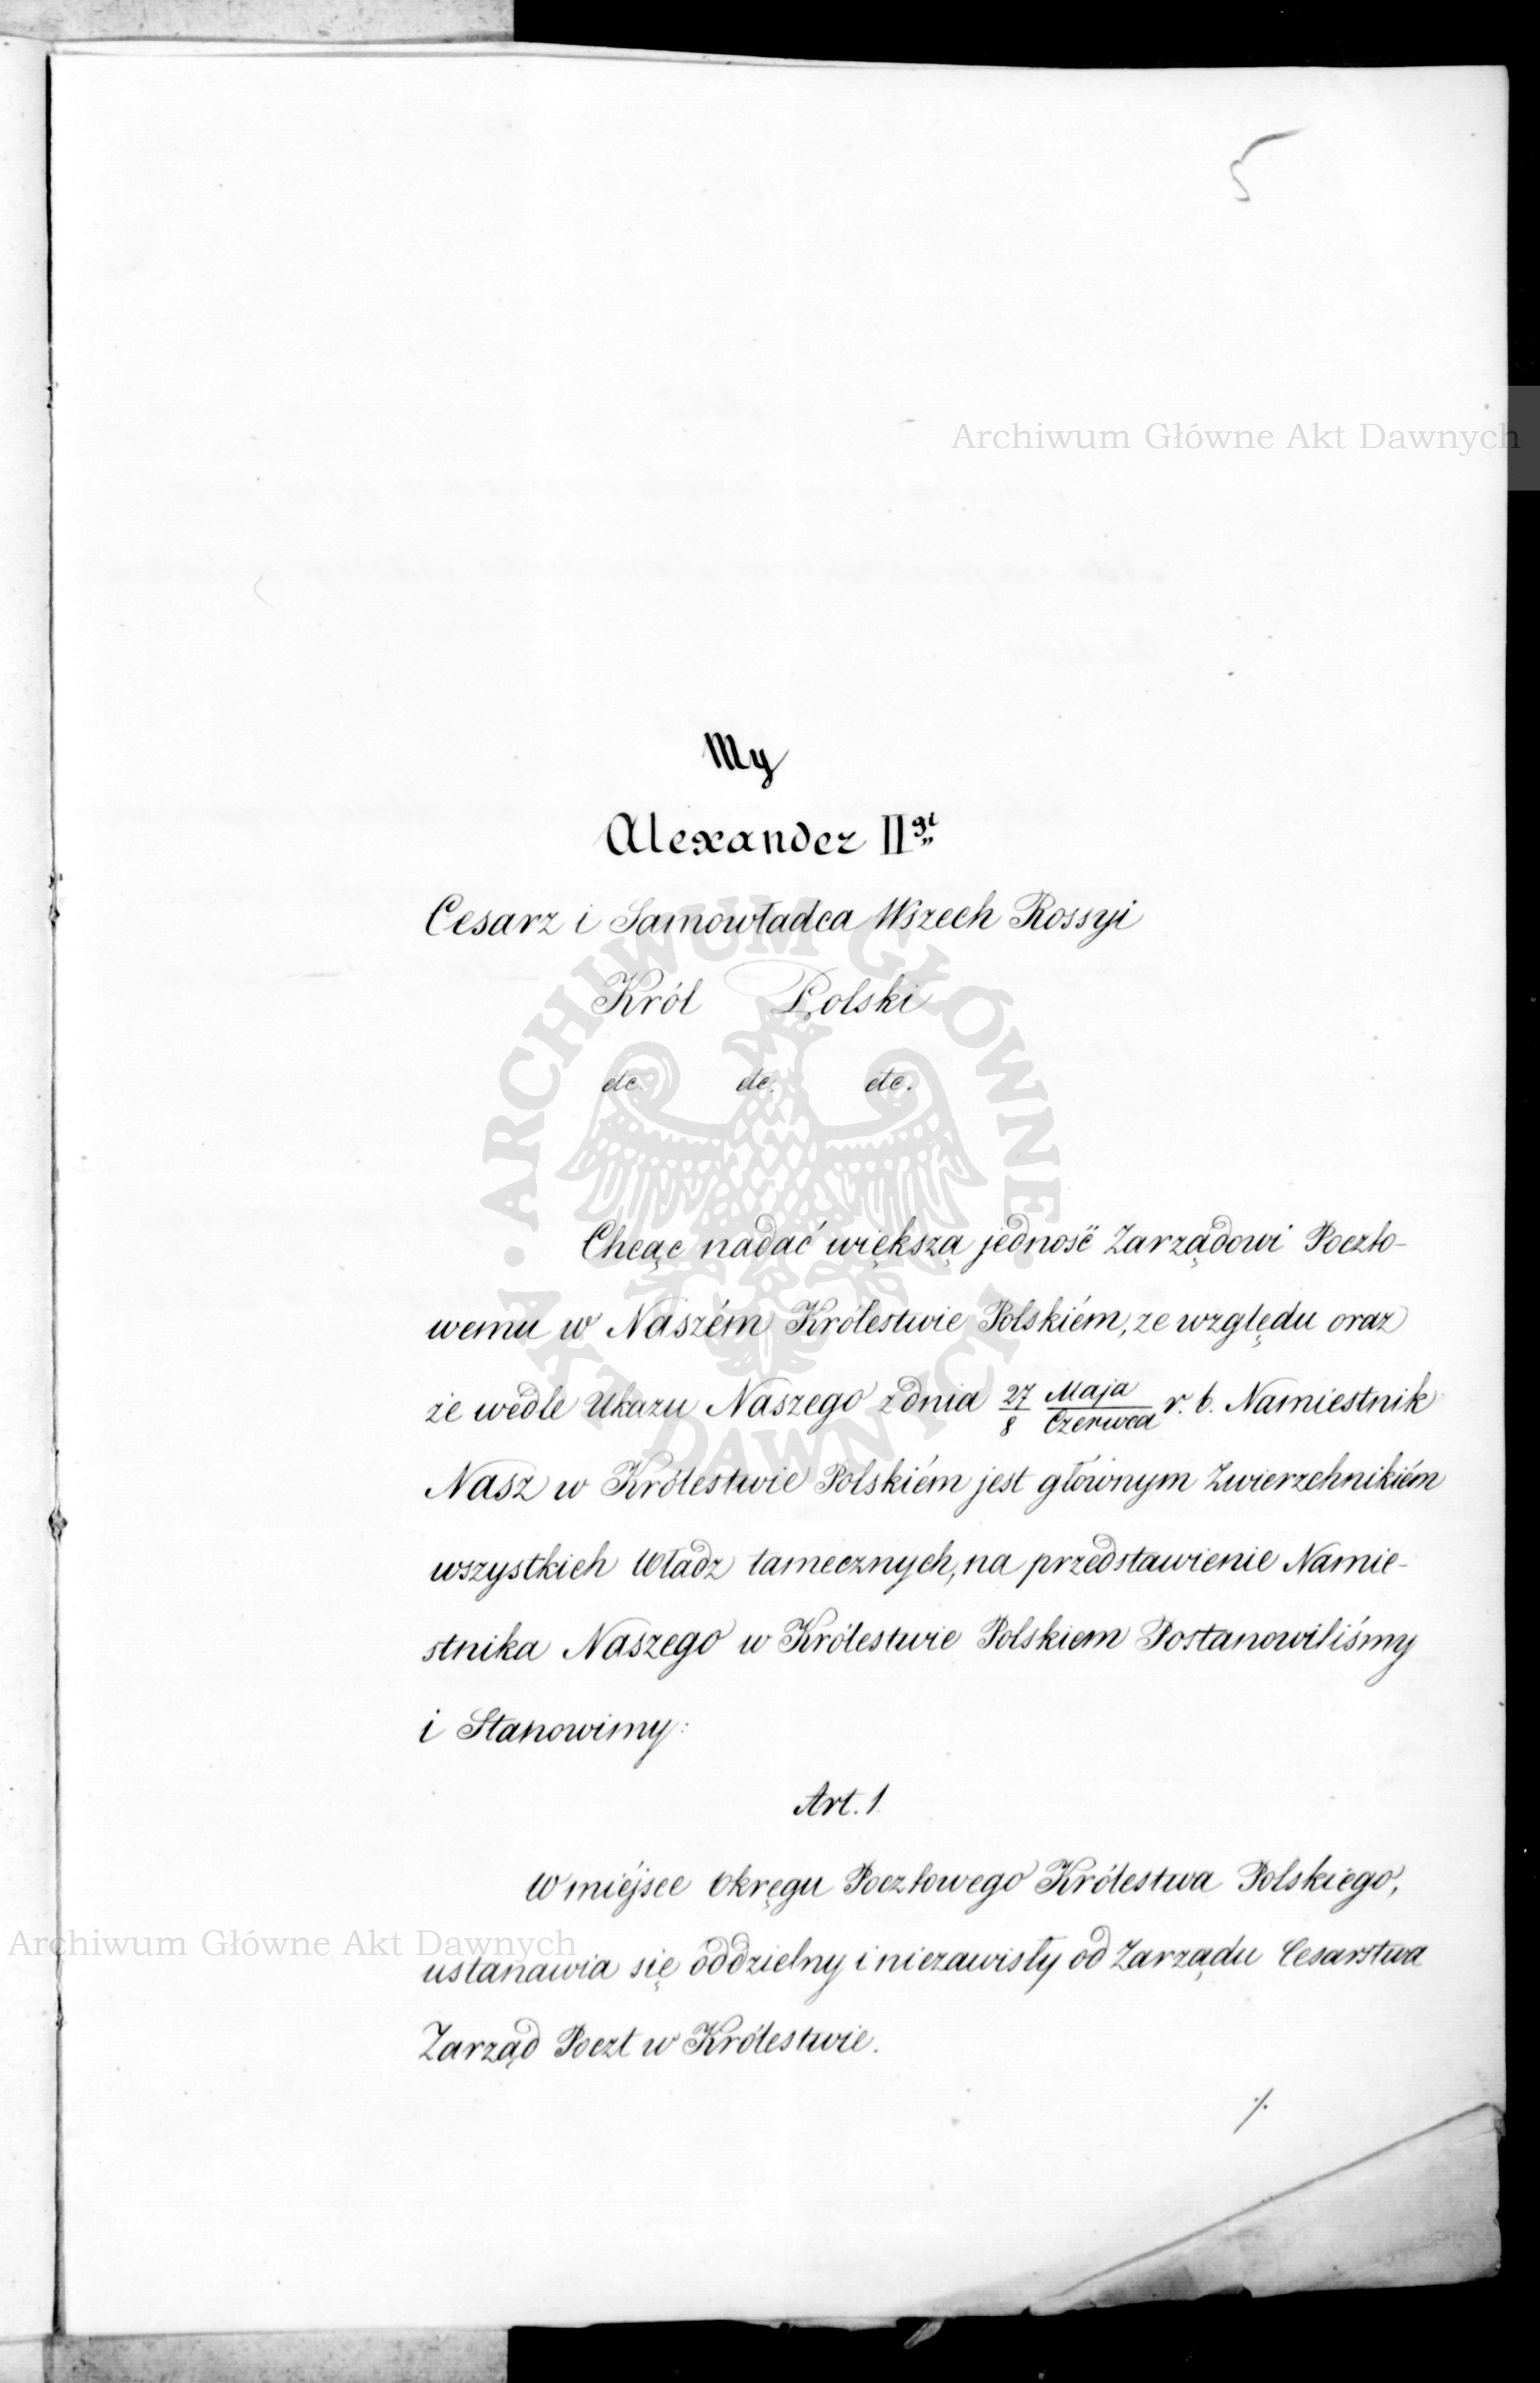 5
Archiwum Główne Akt Dawnych
My
Alexander II gi
Cesarz i Samowładca Wszech Rossyi
Król Polski
etc. etc. etc.
Chcąc nadać większą jedność Zarządowi Poczto-
wemu w Naszém Królestwie Polskiém, ze względu oraz
że wedle Ukazu Naszego z dnia 27/8 Maja/Czerwca r. b. Namiestnik
Nasz w Królestwie Polskiém jest głównym Zwierzchnikiém
wszystkich Władz tamecznych, na przedstawienie Namie-
stnika Naszego w Królestwie Polskiem Postanowiliśmy
i Stanowimy:
Art. 1
W miéjsce Okręgu Pocztowego Królestwa Polskiego,
ustanawia się oddzielny i niezawisły od Zarządu Cesarstwa
Zarząd Poczt w Królestwie.
./.
Archiwum Główne Akt Dawnych
ARCHIWUM GŁÓWNE AKT DAWNYCH